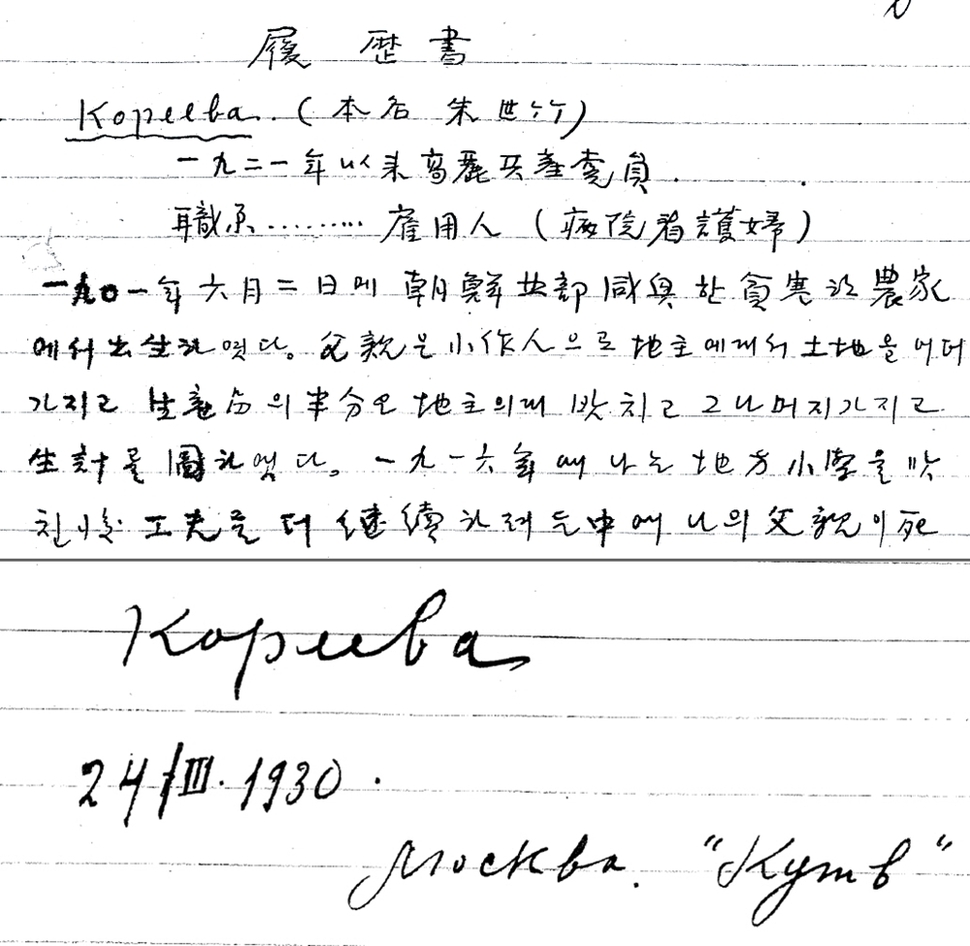 履歷書
Кореева. (本名 朱世竹)
一九二一年以来高麗共産党員.
職業......... 雇用人 (病院看護婦)
一九〇一年六月二日에 朝鮮北部咸興한貧寒한農家
에서出生하엿다。父親은小作人으로地主에게서土地을어더
가지고 生産品의半分은地主의게밧치고그나머지가지고
生計를圖하엿다。一九一六年에나는地方小學을맛
친後工夫를더継續하려든中에나의父親이死
Кореева
24/III. 1930.
Москва. "Кутв"